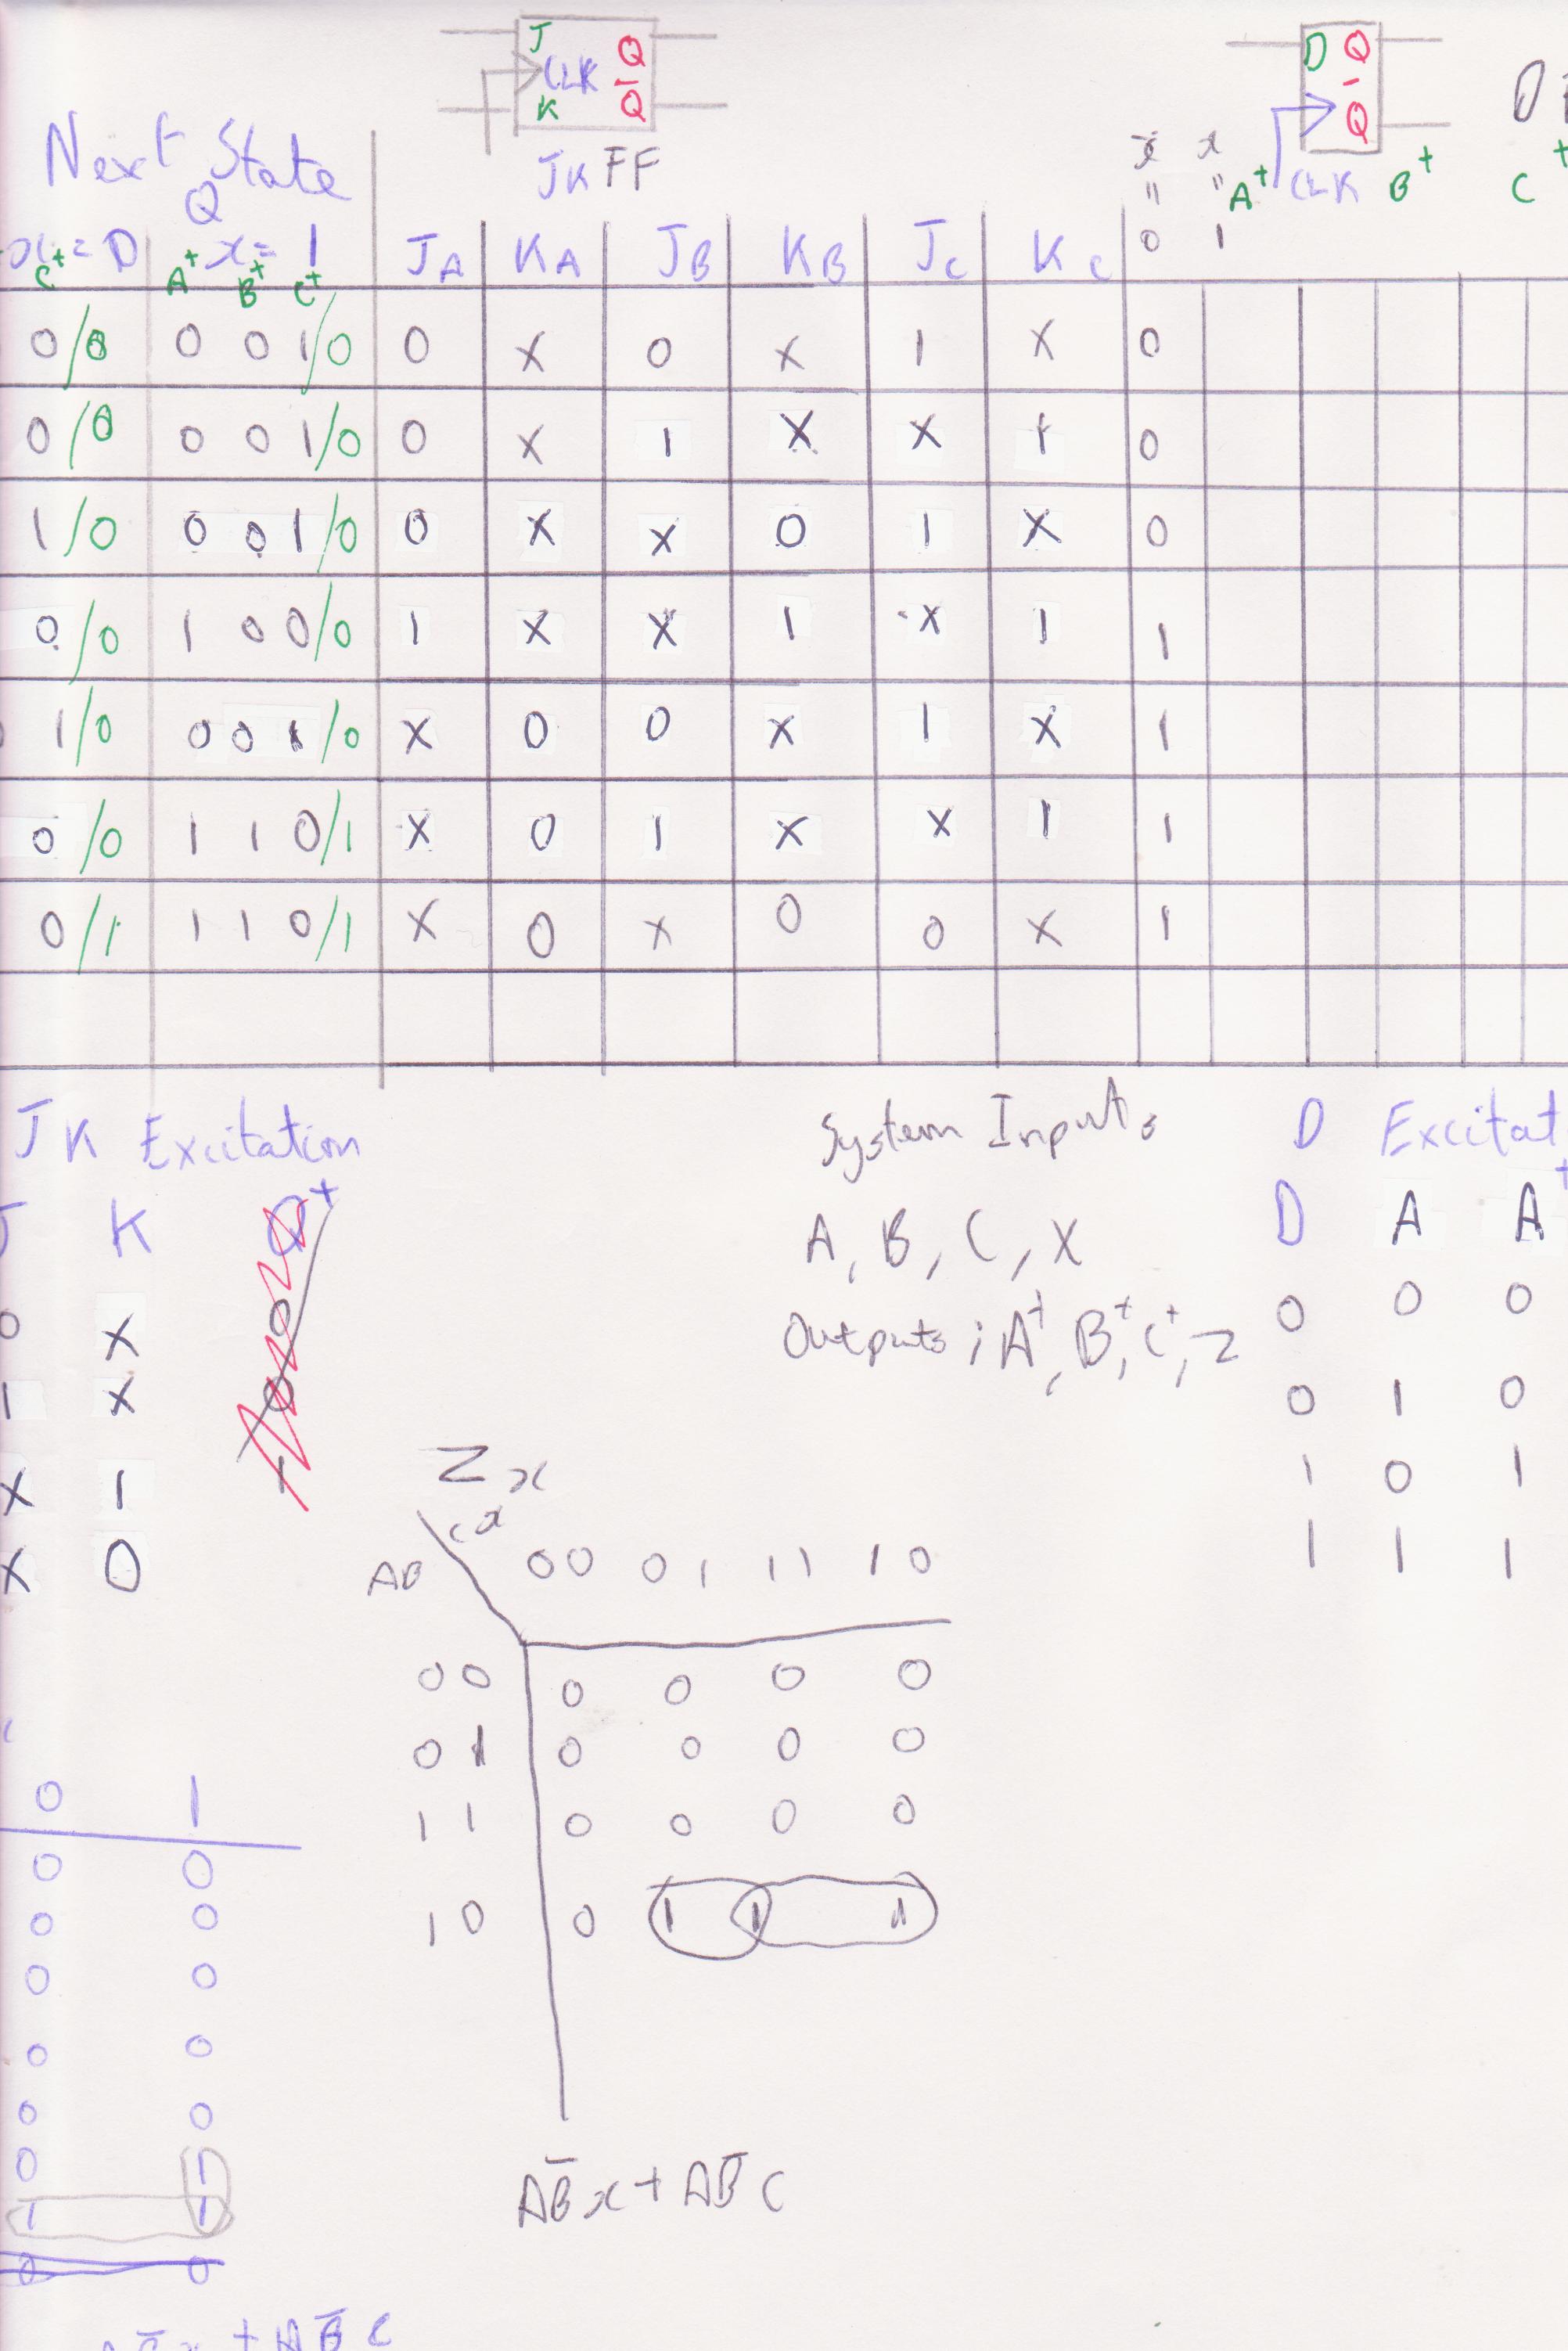 J Q
CLK
K Q̅
D Q
Q̅
Next State
Q
JK FF
x̅ x
" "
A⁺ CLK B⁺ C⁺
0 1
x = 0 x = 1 J_A K_A J_B K_B J_C K_C
C⁺ A⁺ B⁺ C⁺
0/0 0 0 1/0 0 x 0 x 1 x 0
0/0 0 0 1/0 0 x 1 x x 1 0
1/0 0 0 1/0 0 x x 0 1 x 0
0/0 1 0 0/0 1 x x 1 x 1 1
1/0 0 0 1/0 x 0 0 x 1 x 1
0/0 1 1 0/1 x 0 1 x x 1 1
0/1 1 1 0/1 x 0 x 0 0 x 1
JK Excitation
J K Q⁺
0 x
1 x
x 1
x 0
System Inputs
A, B, C, X
Outputs ; A⁺, B⁺, C⁺, Z
D Excitat
D A A⁺
0 0 0
0 1 0
1 0 1
1 1 1
Z x
C x
AB 00 01 11 10
00 0 0 0 0
01 0 0 0 0
11 0 0 0 0
10 0 1 1 1
AB̅x + AB̅C
0 1
0 0
0 0
0 0
0 0
0 0
0 1
1 1
0 0
AB̅x + AB̅C